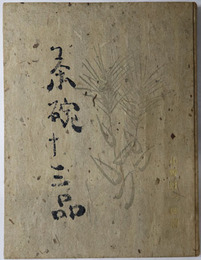 茶碗十三品